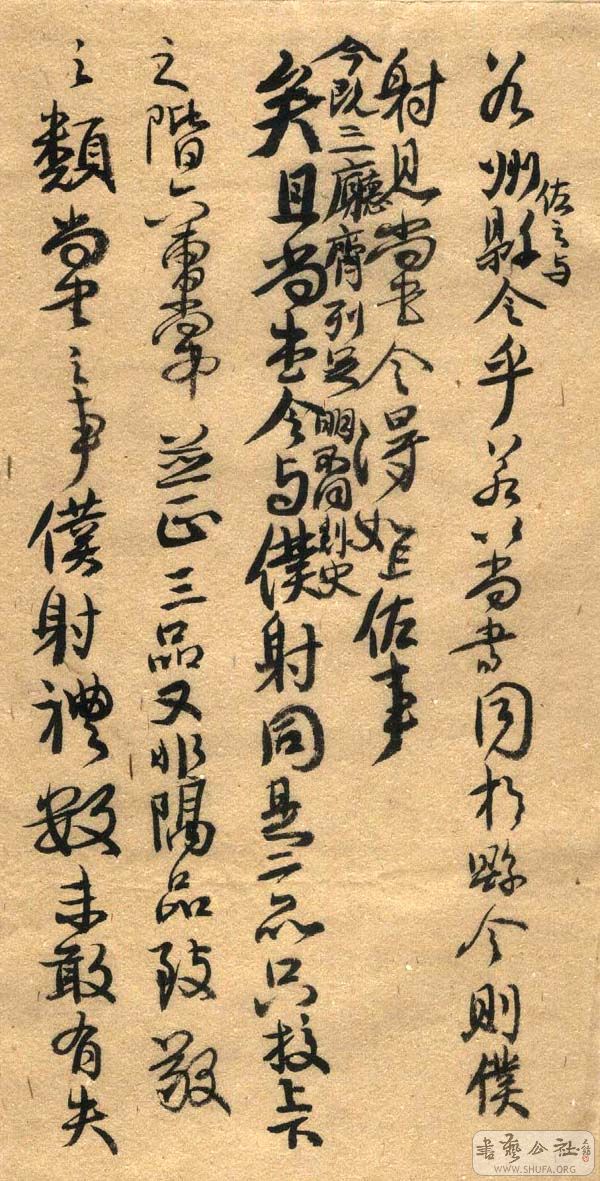 若州縣令乎若以尚書同於縣令則僕
佐之与
射見尚書令得如上佐事
今既三廳齊列足明不同刺史
矣且尚書令与僕射同是二品只校上下
之階六曹尚書並正三品又非隔品致敬
之類尚書之事僕射禮數未敢有失
書藝公社
WWW.SHUFA.ORG